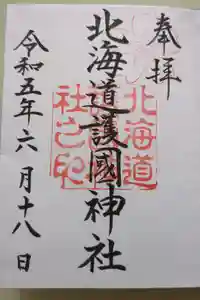 奉拝
北海道護國神社
北海道
社之印
令和五年六月十八日